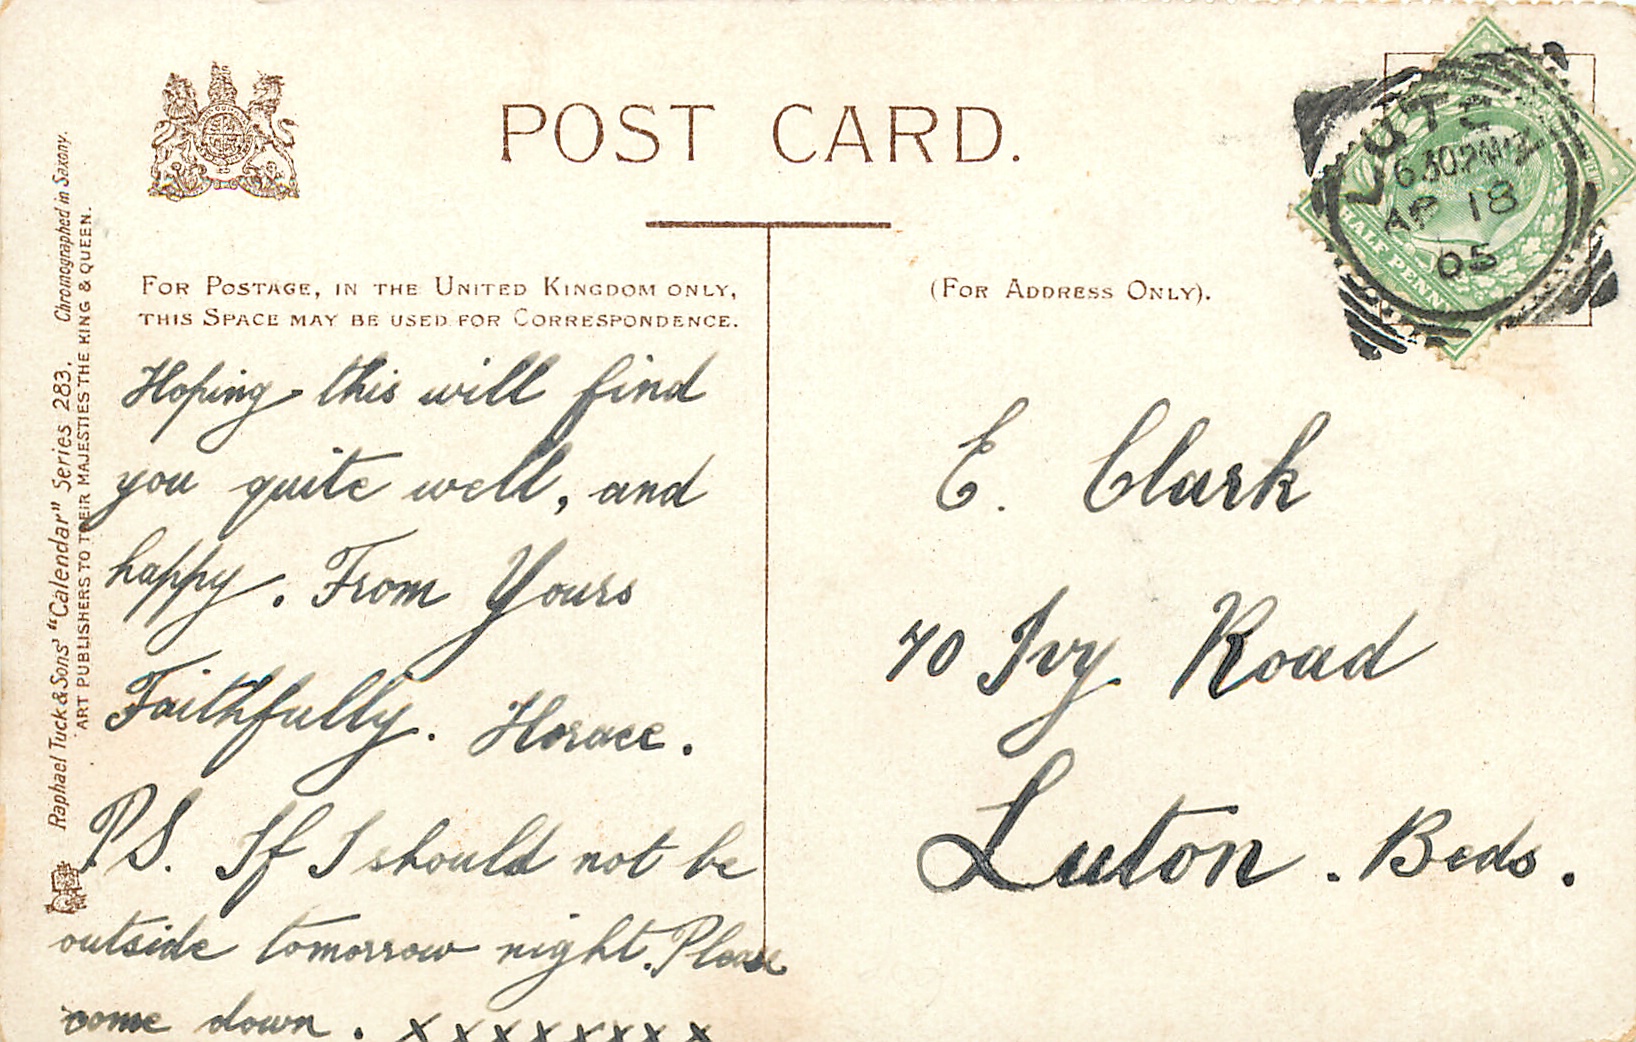 POST CARD.
FOR POSTAGE, IN THE UNITED KINGDOM ONLY,
THIS SPACE MAY BE USED FOR CORRESPONDENCE.
(FOR ADDRESS ONLY).
Raphael Tuck & Sons' "Calendar" Series 283. Chromographed in Saxony.
ART PUBLISHERS TO THEIR MAJESTIES THE KING & QUEEN.
LUTON
6.30 PM
AP 18
05
HALF PENNY
Hoping this will find
you quite well, and
happy. From Yours
Faithfully. Horace.
P.S. If I should not be
outside tomorrow night. Please
come down. x x x x x x x x
E. Clark
70 Ivy Road
Luton. Beds.